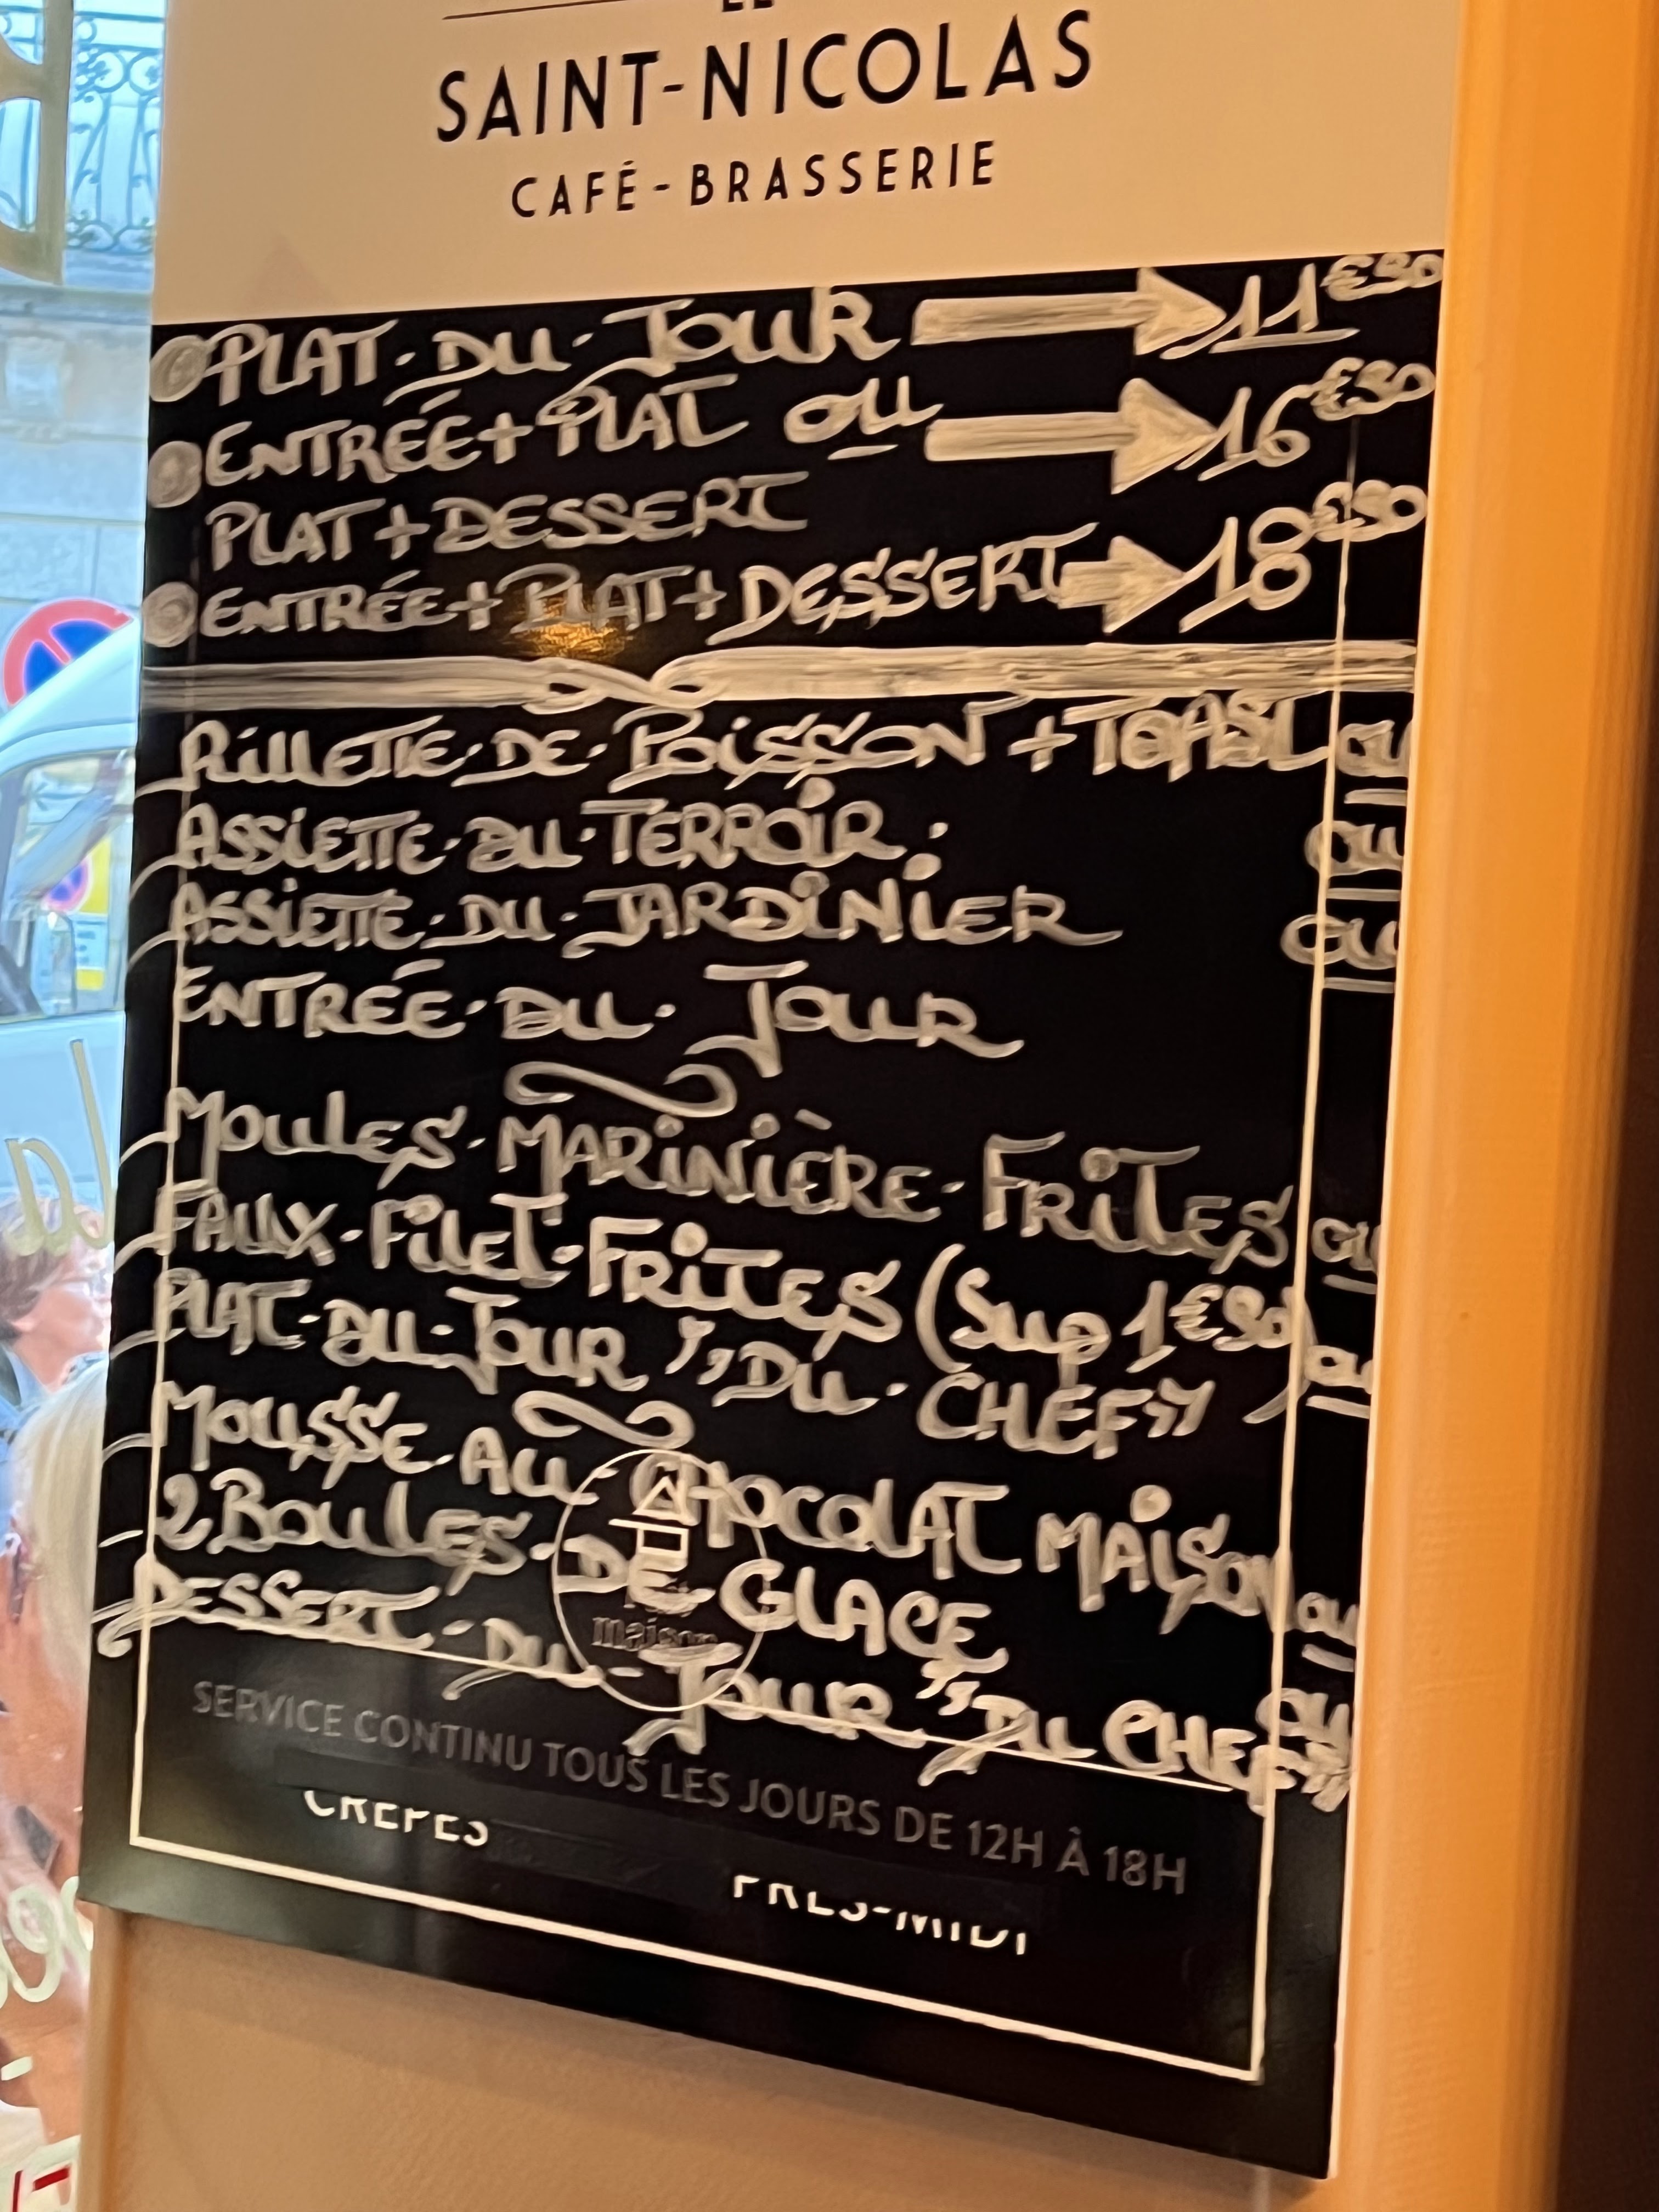 LE
SAINT-NICOLAS
CAFÉ-BRASSERIE
PLAT·DU·JOUR 11€90
ENTRÉE+PLAT OU 16€90
PLAT+DESSERT
ENTRÉE+PLAT+DESSERT 18€90
RILLETTE·DE·POISSON+TOAST OU
ASSIETTE·DU·TERROIR OU
ASSIETTE·DU·JARDINIER OU
ENTRÉE·DU·JOUR
MOULES·MARINIÈRE·FRITES OU
FAUX·FILET·FRITES (Sup 1€90) OU
PLAT·DU·JOUR "DU·CHEF"
MOUSSE AU CHOCOLAT MAISON OU
2 BOULES·DE·GLACE OU
maison
DESSERT·DU·JOUR "DU CHEF"
SERVICE CONTINU TOUS LES JOURS DE 12H À 18H
CRÊPES